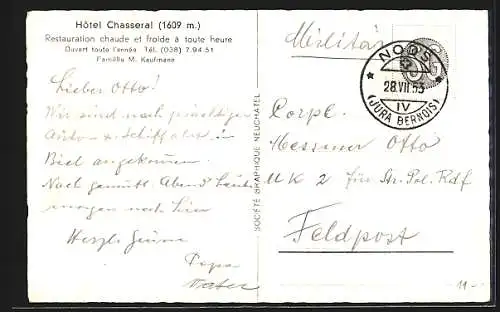 Hôtel Chasseral (1609 m.)
Restauration chaude et froide à toute heure
Ouvert toute l'année Tél. (038) 7.94.51
Famille M. Kaufmann
Lieber Otto!
Wir sind nach prächtiger
Auto- & Schiffahrt in
Biel angekommen.
Noch gemütl. Abend heute
morgen nach hier
Herzl. Grüsse
Papa
Vater
SOCIÉTÉ GRAPHIQUE NEUCHATEL
Militär
NODS
28.VII.53
IV
(JURA BERNOIS)
Corpl.
Messmer Otto
M K 2 für Str. Pol. Rdf
Feldpost
11.-